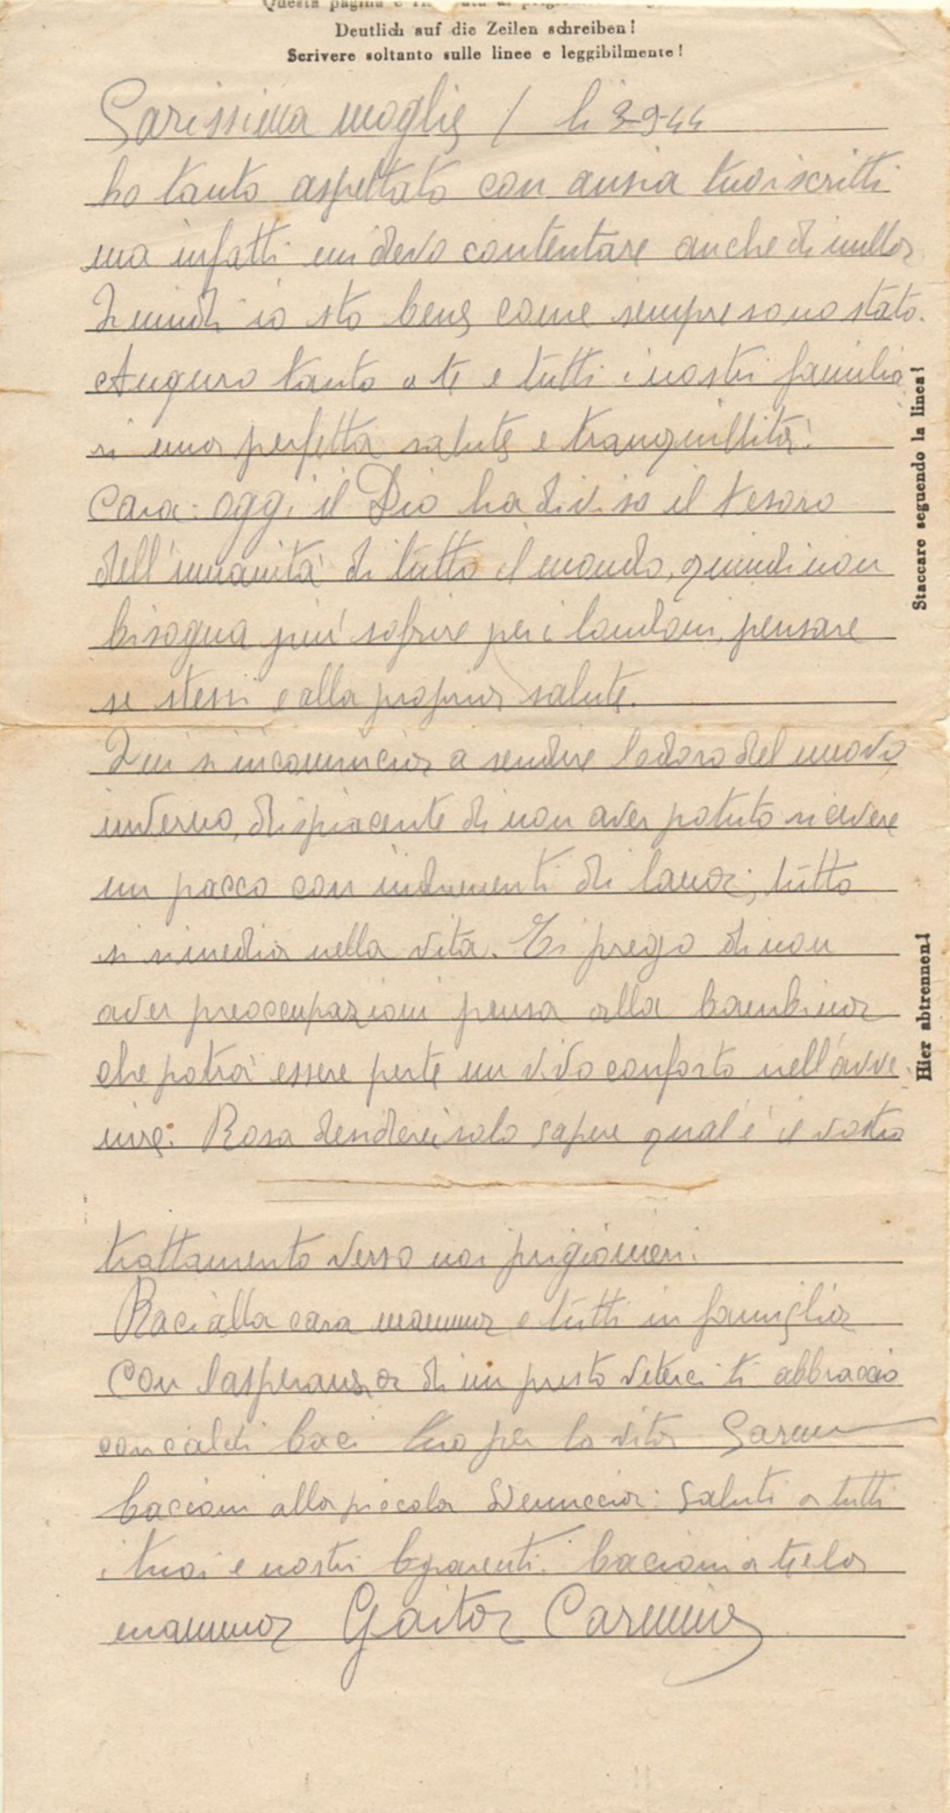 Questa pagina è
Deutlich auf die Zeilen schreiben!
Scrivere soltanto sulle linee e leggibilmente!
Carissima moglie / li 3-9-44
ho tanto aspettato con ansia tuoi scritti
ma infatti mi devo contentare anche di nulla
Quindi io sto bene come sempre sono stato.
Auguro tanto a te e tutti i nostri familia
ri una perfetta salute e tranquillità!
Cara: oggi il Dio ha diviso il tesoro
dell'umanità di tutto il mondo, quindi non
bisogna piu' sofrire per i lontani, pensare
se stessi e alla propria salute.
Qui si incomincia a sendire lodoro del nuovo
inverno, dispiacente di non aver potuto ricevere
un pacco con indumenti di lana; tutto
si rimedia nella vita. Ti prego di non
aver preoccupazioni pensa alla bambina
che potrà essere per te un vivo conforto nell'avve
nire: Rosa desiderei solo sapere qual'è il vostro
trattamento verso noi prigionieri.
Baci alla cara mamma e tutti in famiglia
Con lasperanza di un presto vederci ti abbraccio
con caldi baci tuo per la vita Carm
bacioni alla piccola saluti a tutti
i tuoi e nostri parenti. bacioni a te e la
mamma Gaita Carmine
Staccare seguendo la linea!
Hier abtrennen!